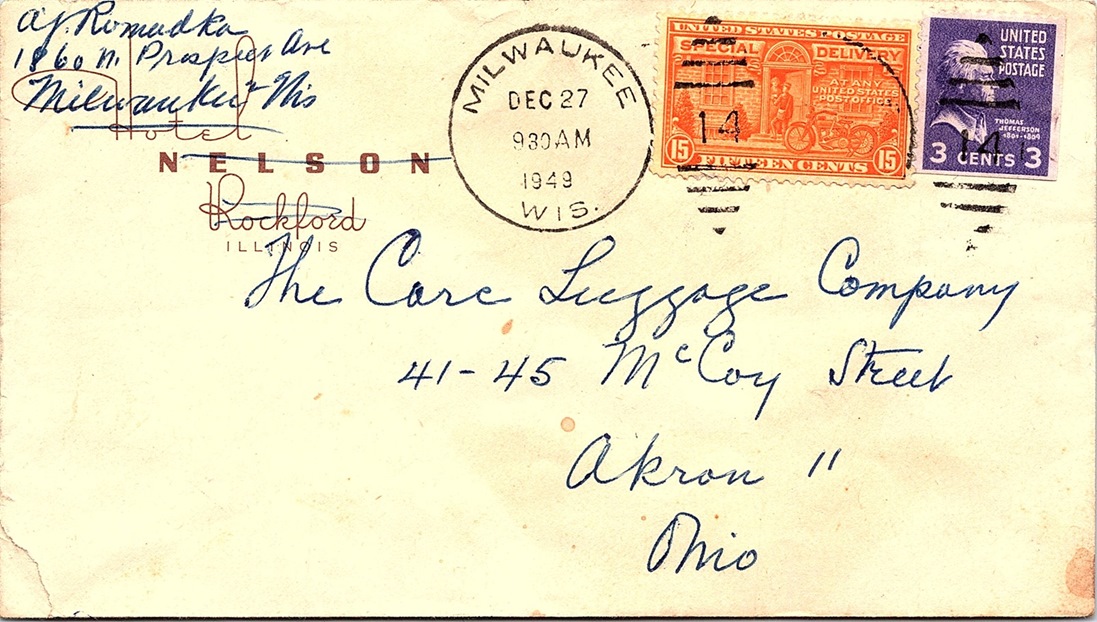 A.J. Romadka
1860 N. Prospect Ave
Milwaukee Wis
Hotel
NELSON
Rockford
ILLINOIS
MILWAUKEE
DEC 27
930 AM
1949
WIS.
UNITED STATES POSTAGE
SPECIAL DELIVERY
AT ANY
UNITED STATES
POST OFFICE
14
15 FIFTEEN CENTS 15
UNITED
STATES
POSTAGE
THOMAS
JEFFERSON
1801-1809
14
3 CENTS 3
The Care Luggage Company
41-45 McCoy Street
Akron 11
Ohio